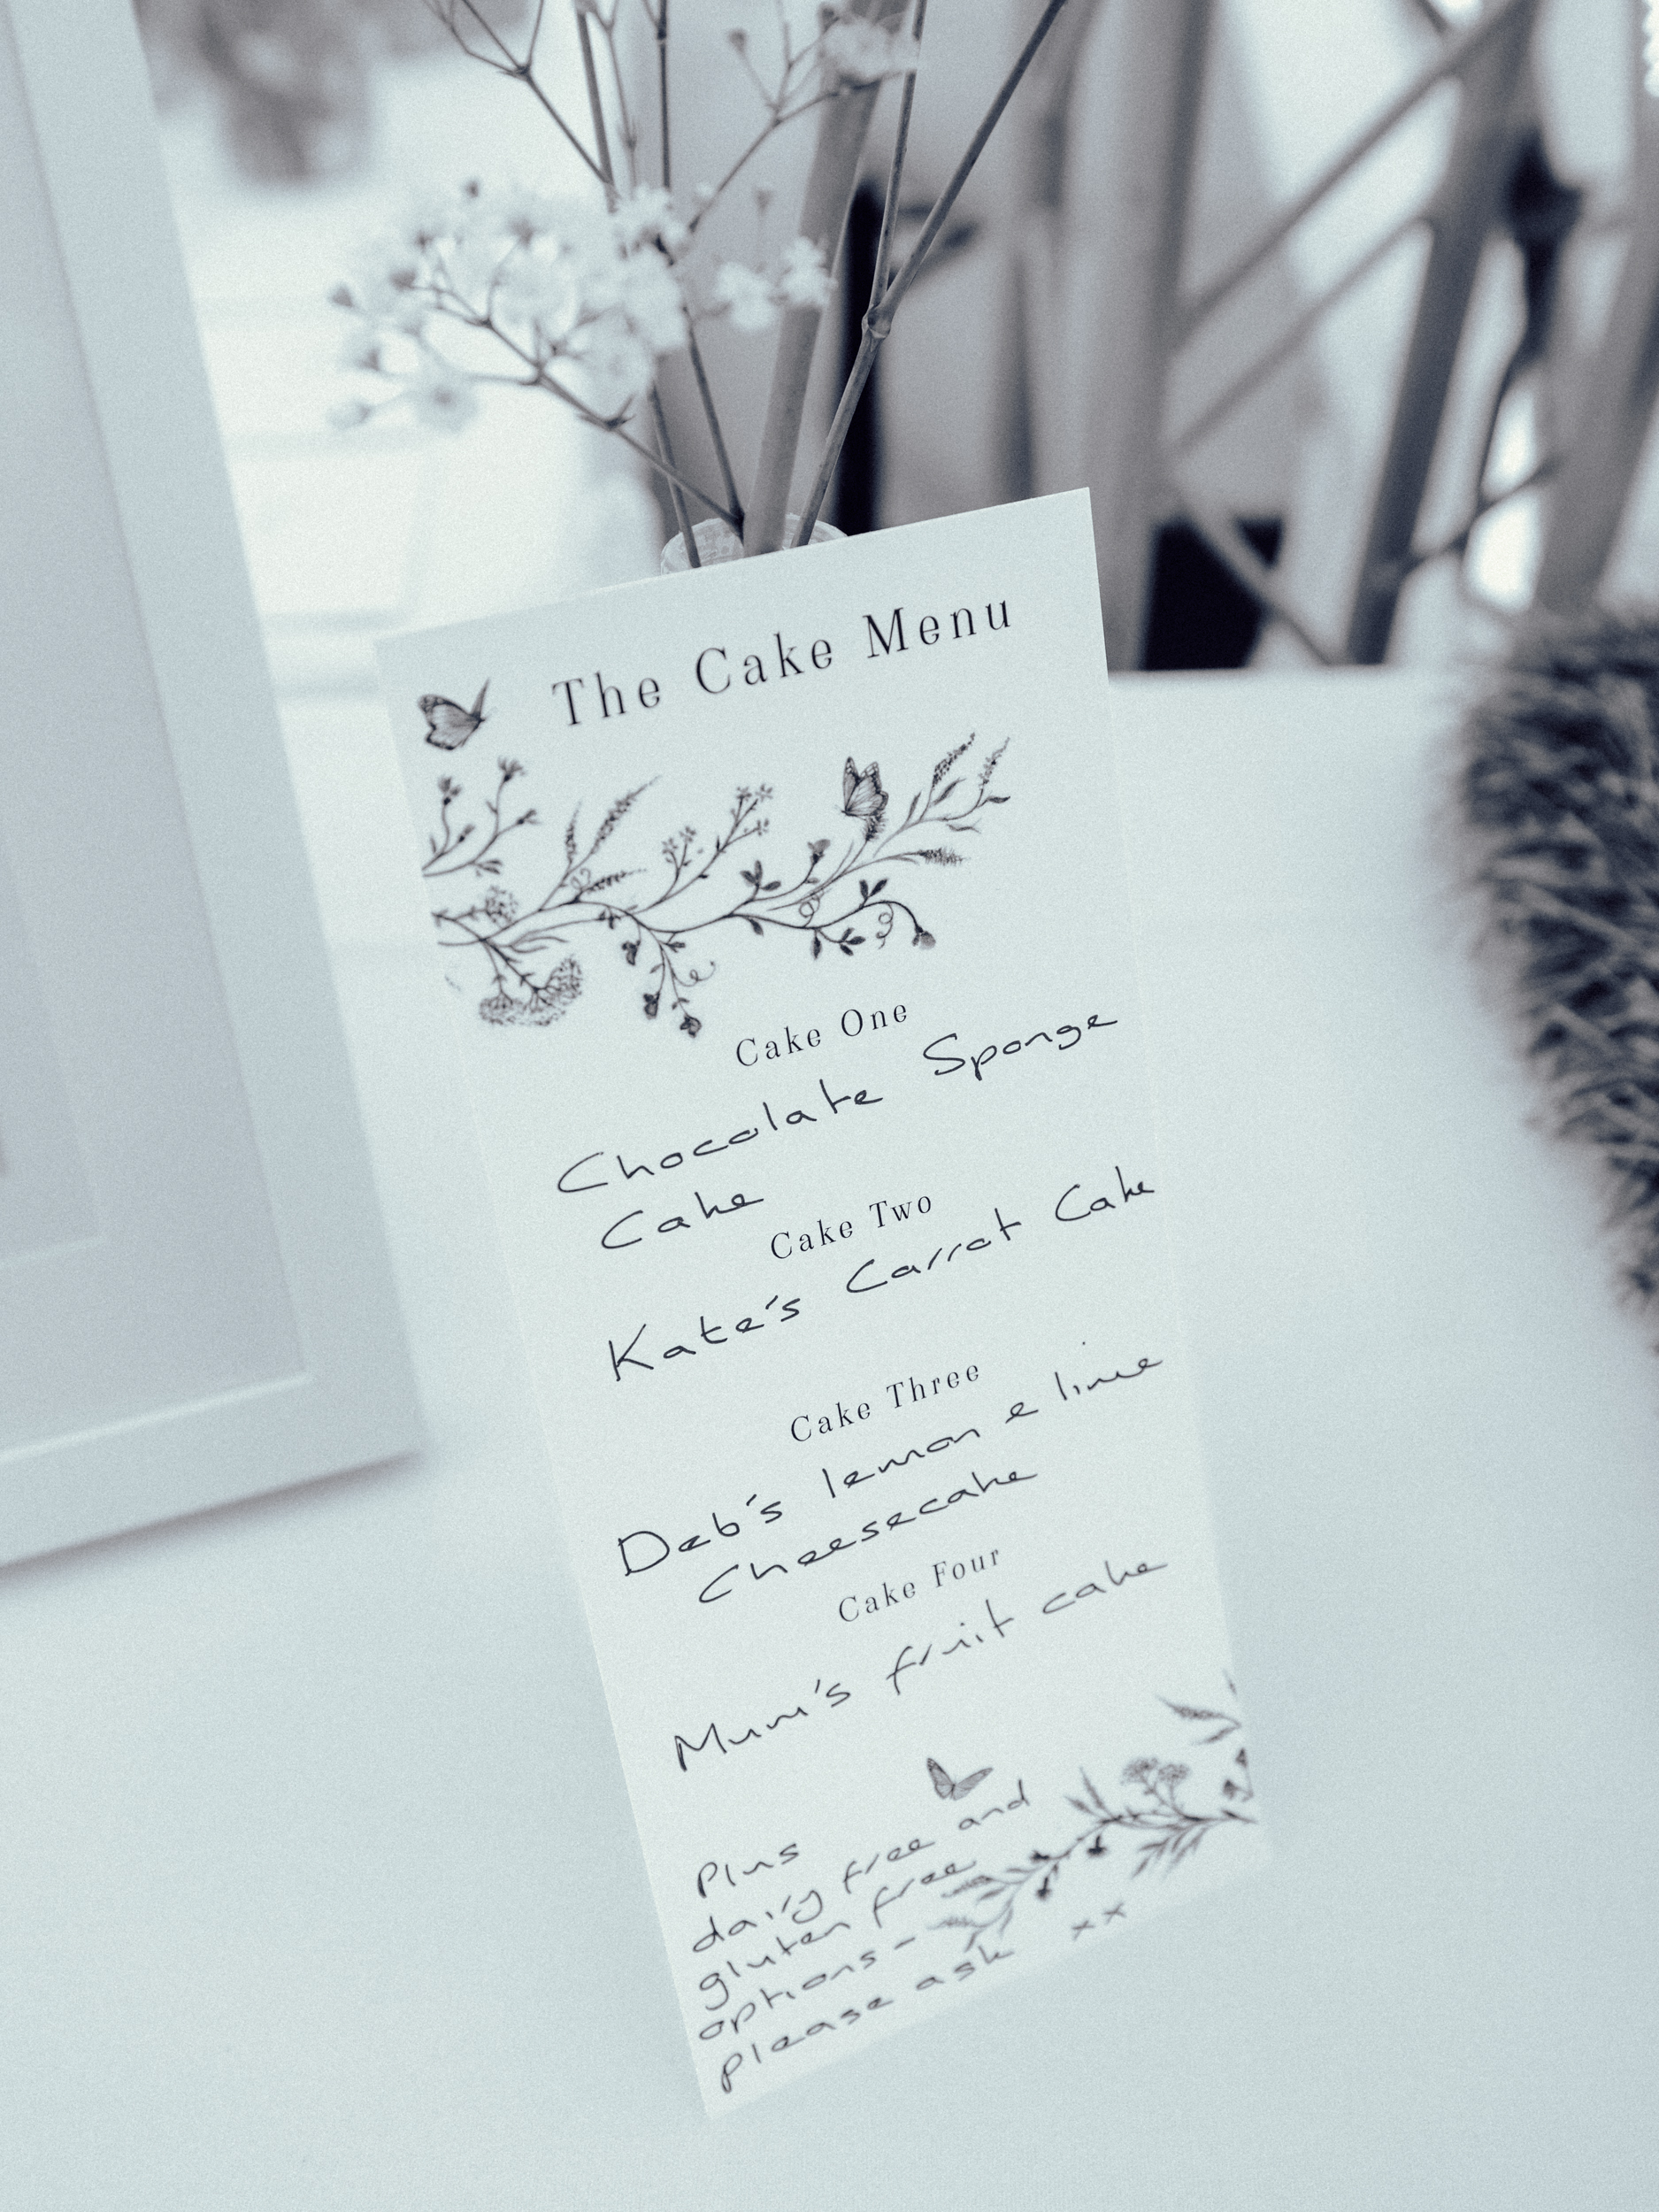 The Cake Menu
Cake One
Chocolate Sponge
Cake
Cake Two
Kate's Carrot Cake
Cake Three
Deb's lemon & lime
Cheesecake
Cake Four
Mum's fruit cake
Plus
dairy free and
gluten free
options -
please ask xx